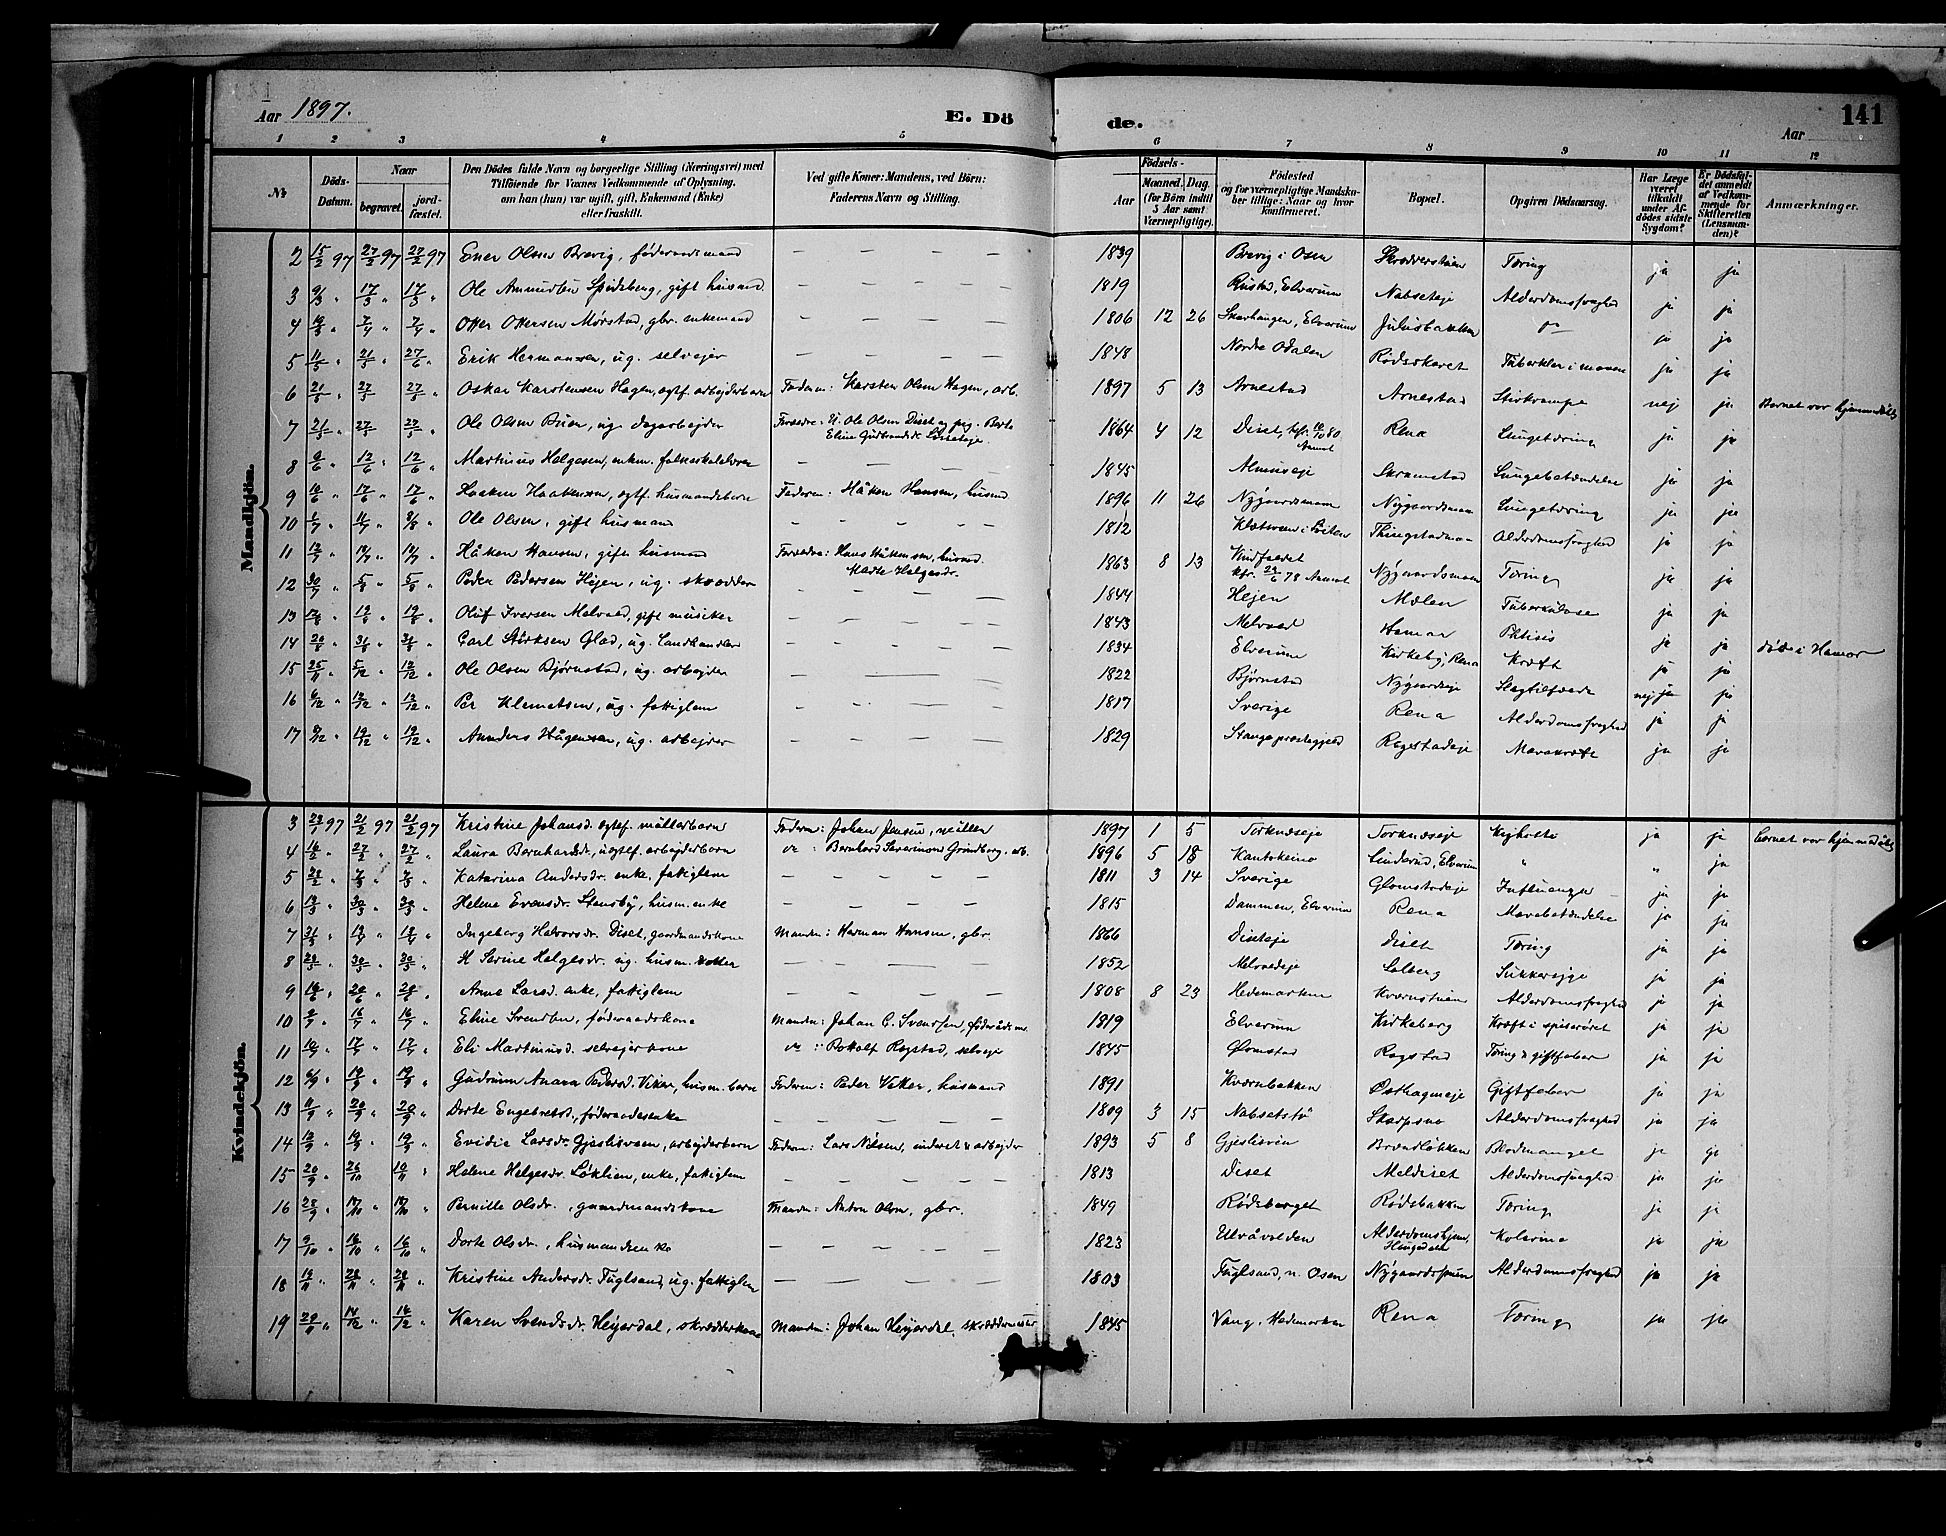 Aar 1897. E. Dö de. Aar 141
1 2 3 4 5 6 7 8 9 10 11 12
No. Döds-Datum. Naar begravet. jord-fæstet. Den Dödes fulde Navn og borgerlige Stilling (Næringsvei) med Tilföiende for Voxnes Vedkommende af Oplysning, om han (hun) var ugift, gift, Enkemand (Enke) eller fraskilt. Ved gifte Koner: Mandens, ved Börn: Faderens Navn og Stilling. Födsels- Aar Maaned. Dag. (for Börn indtil 5 Aar samt Værnepligtige). Födested og for værnepligtige Mandskaber tillige: Naar og hvor konfirmeret. Bopæl. Opgiven Dödsaarsag. Har Læge været tilkaldt under Afdödes sidste Sygdom? Er Dödsfaldet anmeldt af Vedkommende for Skifteretten (Lensmanden)? Anmærkninger.
Mandkjön.
2 15/2 97 27/2 97 27/2 97 Ener Olsen Brevig, föderaadsmand – – – – 1839 Brevig i Osen Skredderstuen Tæring ja ja
3 9/3 " 17/3 " 17/3 " Ole Ammundsen Spidsberg, gift husmd. – – – – 1819 Rustad, Elverum Nabseteje Alderdomssvaghed ja ja
4 " 7/4 " 7/4 " Otter Ottersen Mørstad, gbr. enkemand – – – – 1806 12 26 Skarhaugen, Elverum Julusbakken ja ja
5 11/5 " 21/5 " 27/6 " Erik Hermansen, ug. selvejer – – – – 1848 Nordre Odalen Rødsskaret Tuberkler i maven ja ja
6 21/5 " 27/5 " 27/5 " Oskar Karstensen Hagen, ægtef. arbejderbarn Faderen: Karsten Olsen Hagen, arb. 1897 5 13 Arnestad Arnestad Stivkrampe nej ja Barnet var hjemmedøbt
7 21/5 " 27/5 " 27/5 " Ole Olsen Buen, ug. dagarbejder Forældre: U. Ole Olsen Diset og pig. Berte
Eline Gudbrandsdr. Diseteje. 1864 4 12 Diset, kfr. 10/10 80 Aamot Rena Lungetæring ja ja
8 9/6 " 12/6 " 12/6 " Martinus Helgesen, enkm. folkeskolelærer – – – – 1845 Almuseje Skramstad Lungebetændelse ja ja
9 10/6 " 17/6 " 17/6 " Haaken Haakensen, ægtef. husmandsbarn Faderen: Håken Hansen, husmd. 1896 11 26 Nygaardsmoen Nygaardsmoen Lungetæring ja ja
10 11/7 " 8/8 " Ole Olsen, gift husmand – – – – 1812 Thingstadmo Alderdomssvaghed ja ja
11 12/7 " 17/7 " 17/7 " Håken Hansen, gift husmand Forældre: Hans Håkensen, husmd.
Marte Helgesdr. 1863 8 13 Vindfaret kfr. 23/6 78 Aamot Nygaardsmoen Tæring ja ja
12 30/7 " 5/8 " 5/8 " Peder Pedersen Hejen, ug. skrædder – – – – 1844 Hejen Mælen Tuberkulose ja ja
13 " 19/8 " 19/8 " Oluf Iversen Melvold, gift musiker – – – – 1843 Melvold Hamar Phtisis ja ja døde i Hamar
14 " 31/8 " 31/8 " Carl Størksen Glad, ug. landhandler – – – – 1834 Elverum Kirkeby, Rena Kræft ja ja
15 25/11 " 5/12 " 12/12 " Ole Olsen Bjørnstad, ug. arbejder – – – 1822 Bjørnstad Nygaardseje Slagtilfælde nej ja ja
16 6/12 " 13/12 " 13/12 " Per Klemetsen, ug. fattiglem – – – – 1817 Sverige Rena Alderdomssvaghed ja ja
17 9/12 " 19/12 " 19/12 " Annders Hågensen, ug. arbejder – – – – 1829 Stange præstegjeld Rogstadeje Mavekræft ja ja
Kvindekjön.
3 23/1 97 21/2 97 21/2 97 Kristine Johansd. ægtef. møllerbarn Faderen: Johan Jensen, møller 1897 1 5 Torknæseje Torknæseje Kighoste ja ja barnet var hjemmedøbt
4 16/2 " 27/2 " 27/2 " Laura Bernhardsdr., uægtef. arbejderbarn do : Bernhard Severinsen Grundberg, arb. 1896 5 18 Kautokeino Linderud, Elverum " " ja
5 28/2 " 7/3 " 7/3 " Katarina Andersdr. enke, fattiglem – – – – – 1811 3 14 Sverige Glomstadeje Influenza ja ja
6 19/3 " 30/3 " 30/3 " Helene Evensdr. Stensby, husm. enke – – – – – 1815 Dammen, Elverum Rena Mavebetændelse ja ja
7 31/3 " 13/4 " 13/4 " Ingeborg Halvorsdr. Diset, gaardmandskone Manden: Herman Hansen, gbr. 1866 Diseteje Diset Tæring ja ja
8 23/5 " 30/5 " 30/5 " H Serine Helgesdr. ug. husm. datter – – – 1852 Melvoldeje Solberg Sukkersyge ja ja
9 16/6 " 20/6 " 20/6 " Anne Larsd. enke, fattiglem – – – – 1808 8 23 Hedemarken Kværnstuen Alderdomssvaghed ja ja
10 9/7 " 16/7 " 16/7 " Eline Svendsen, föderaadskone Manden: Johan C. Svendsen, föderådsm. 1819 Elverum Kirkeberg Kræft i spiserøret ja ja
11 10/7 " 17/7 " 17/7 " Eli Martinusd. selvejerkone do : Rogstad, selveje 1845 Ølmstad Rogstad Tæring & giftfeber ja ja
12 6/9 " 19/9 " 19/9 " Gudrun Anara Pedersd. Veker, husm. barn Faderen: Peder Veker, husmand 1891 Kværnbakken Østhageneje Giftfeber ja ja
13 11/9 " 20/9 " 20/9 " Dorte Engebretsd., föderaadsenke – – – – 1809 3 15 Nabsetstø Skarpsno Alderdomssvaghed ja ja
14 12/9 " 19/9 " 19/9 " Evidie Larsdr. Gjeslisveen, arbejderbarn Faderen: Lars Nilsen, inderst & arbejder 1893 5 8 Gjeslisvin Brændløkken Blodmangel ja ja
15 20/9 " 26/10 " 10/11 " Helene Helgesdr. Løklien, enke, fattiglem – – – – – 1813 Diset Meldiset Alderdomssvaghed ja ja
16 28/9 " 17/10 " 17/10 " Pernille Olsdr., gaardmandskone Manden: Anton Olsen, gbr. 1849 Rødsberget Rødsbakken Tæring ja ja
17 9/10 " 16/10 " 16/10 " Dorte Olsdr., husmandsenke – – – – – 1823 Ulvåvolden Alderdomshjem, Haugedalen Kolerine ja ja
18 19/11 " 28/11 " 28/11 " Kristine Andersdr. Fuglsand, ug. fattiglem – – – – – 1803 Fuglsand, n. Osen Nygaardsstuen Alderdomssvaghed ja ja
19 29/11 " 14/12 " 14/12 " Karen Svendsdr. Heyerdal, skrædderkone Manden: Johan Heyerdal, skræddermester 1845 Vang, Hedemarken Rena Tæring ja ja